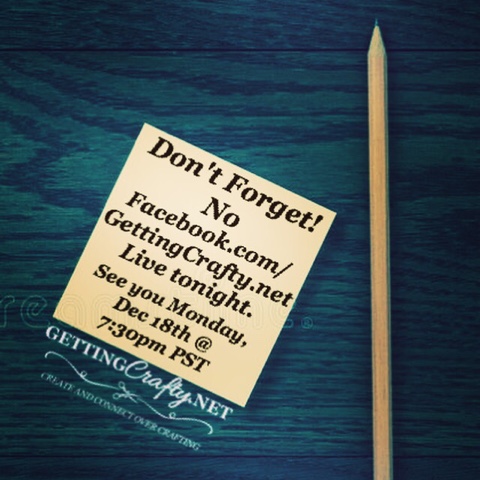 Don't Forget!
No
Facebook.com/
GettingCrafty.net
Live tonight.
See you Monday,
Dec 18th @
7:30pm PST
GETTINGCrafty.NET
CREATE AND CONNECT OVER CRAFTING